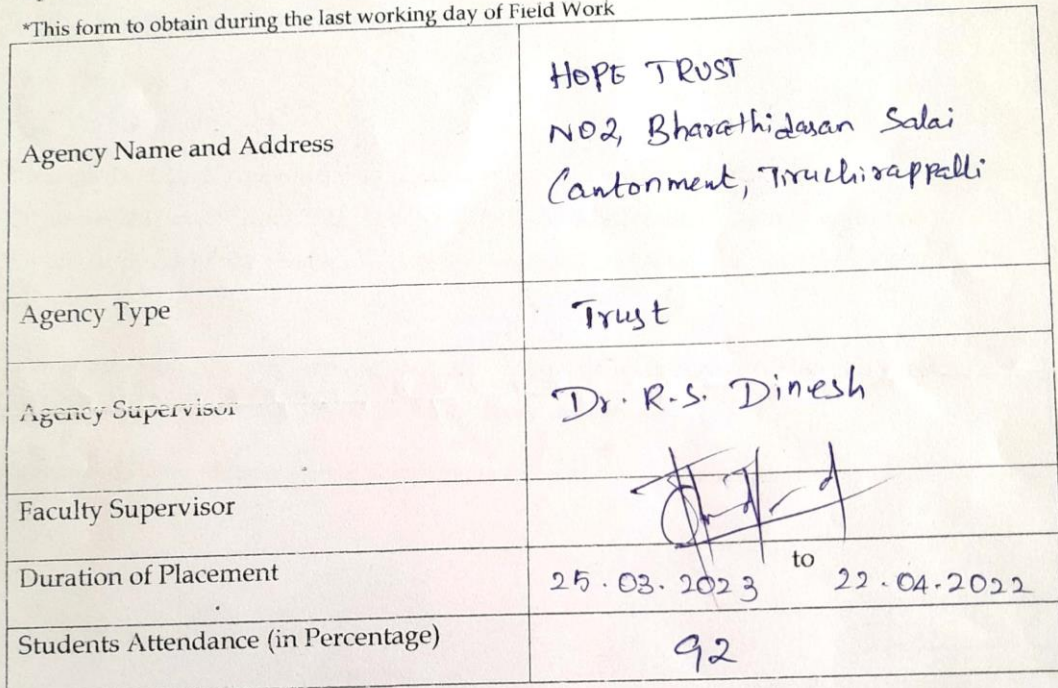 *This form to obtain during the last working day of Field Work
Agency Name and Address
HOPE TRUST
NO2, Bharathidasan Salai
Cantonment, Tiruchirappalli
Agency Type
Trust
Agency Supervisor
Dr. R.S. Dinesh
Faculty Supervisor
Duration of Placement
25.03.2023 to 22.04.2022
Students Attendance (in Percentage)
92